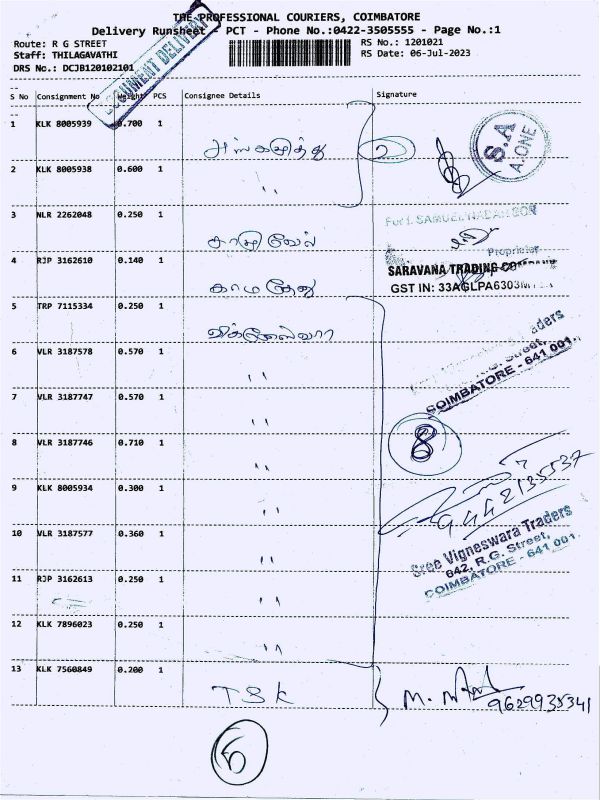 THE PROFESSIONAL COURIERS, COIMBATORE
Delivery Runsheet - PCT - Phone No.:0422-3505555 - Page No.:1
Route: R G STREET
RS No.: 1201021
Staff: THILAGAVATHI
RS Date: 06-Jul-2023
DRS No.: DCJB120102101
DOCUMENT DELIVERY
S No Consignment No Weight PCS Consignee Details Signature
1 KLK 8005939 0.700 1
2
S.A
A.ONE
2 KLK 8005938 0.600 1
" 
3 NLR 2262048 0.250 1
சாமுவேல்
For I. SAMUEL NADAR SON
Proprietor
4 RJP 3162610 0.140 1
காமதேனு
SARAVANA TRADING COMPANY
GST IN: 33AGLPA6303M
5 TRP 7115334 0.250 1
விக்னேஸ்வரா
6 VLR 3187578 0.570 1
"
Traders
R.G. Street,
COIMBATORE - 641 001.
7 VLR 3187747 0.570 1
"
8 VLR 3187746 0.710 1
"
8
9 KLK 8005934 0.300 1
"
9442135537
10 VLR 3187577 0.360 1
"
Sree Vigneswara Traders
642, R.G. Street,
COIMBATORE - 641 001.
11 RJP 3162613 0.250 1
"
12 KLK 7896023 0.250 1
"
13 KLK 7560849 0.200 1
TSK
9629935341
6